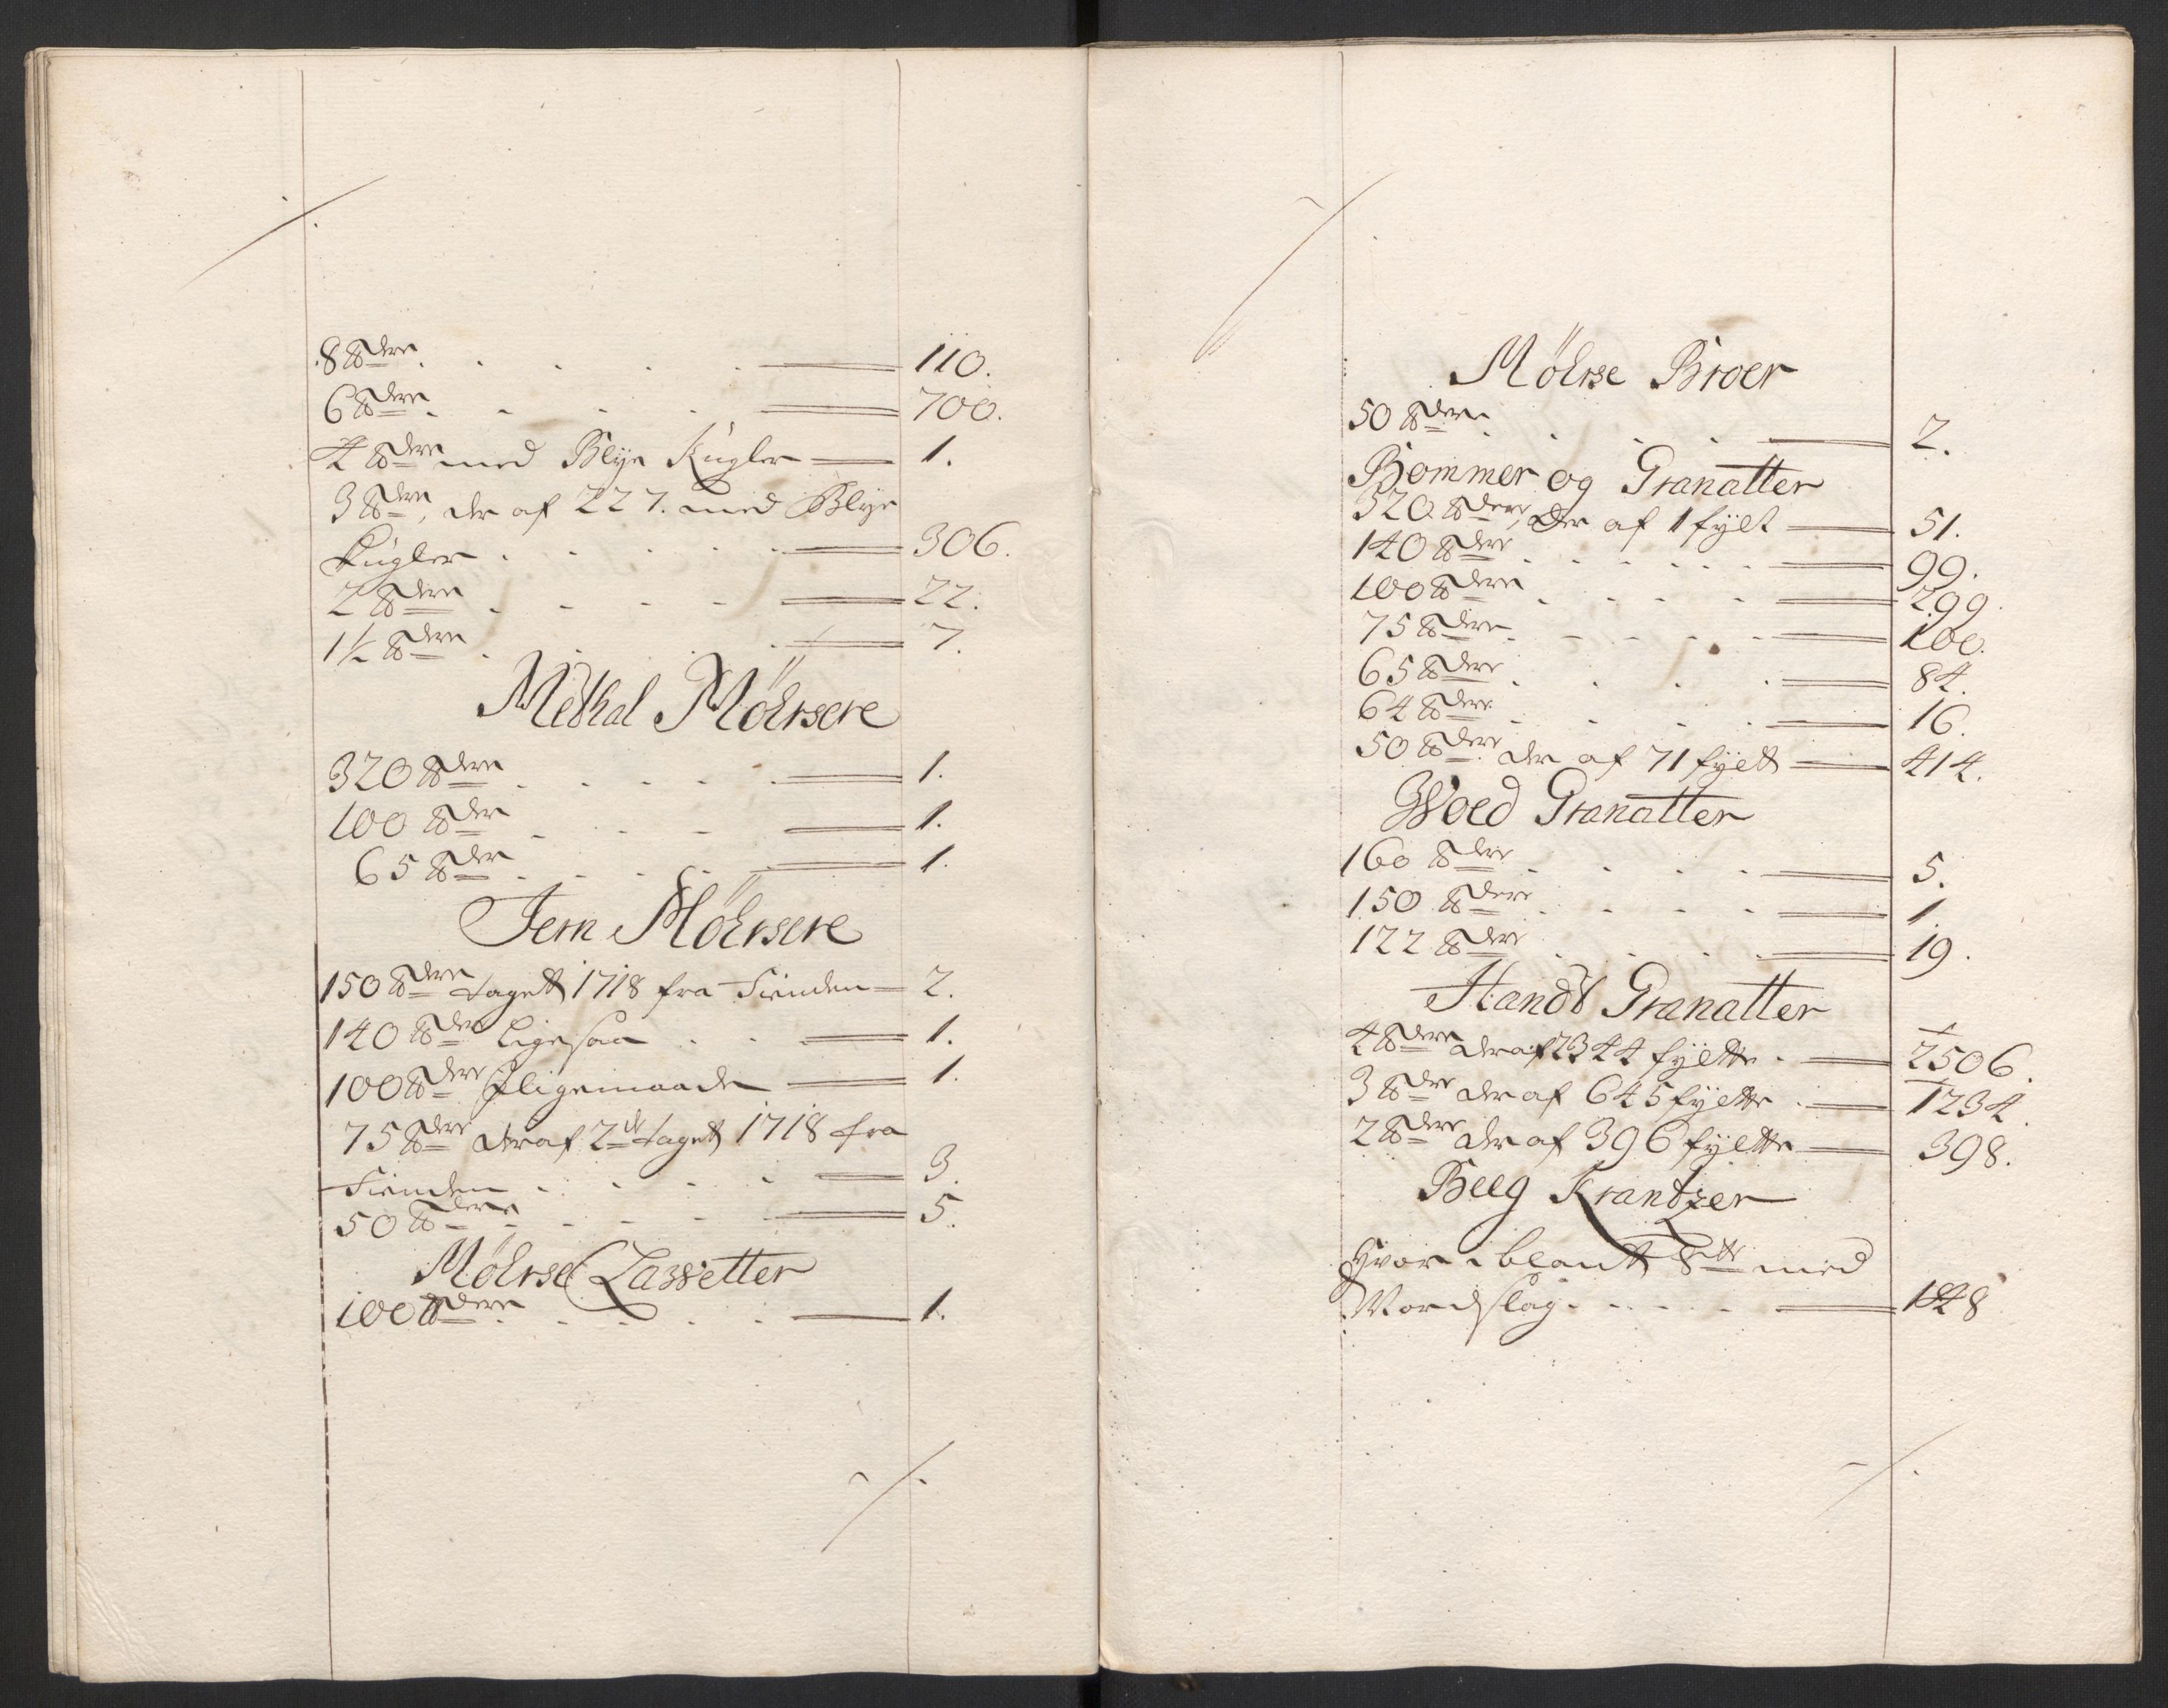 8 ℔dere . . . . . 110.
6 ℔dere . . . . 700.
4 ℔dere med Blye Kugler 1.
3 ℔dere, der af 227. med Blye
Kugler . . . . . 306.
2 ℔dere . . . . 22.
1½ ℔dere . . . . 7.
Methal Möhrsere
320 ℔dere . . . . . 1.
100 ℔der . . . 1.
65 ℔der . . . . 1.
Jern Möhrsere
150 ℔dere tagett 1718 fra Fienden 2.
140 ℔der ligesaa . . . 1.
100 ℔dere Iligemaade 1.
75 ℔dere deraf 2de taget 1718 fra
Fienden . . . . . 3.
50 ℔dere . . . . 5.
Möhrse Lassetter
100 ℔dere . . . . . 1.
Möhrse Broer
50 ℔dere . . . . 2.
Bommer og Granatter
320 ℔dere, der af 1 fylt 51.
140 ℔dere . . . . . . 99.
100 ℔dere . . . . 299.
75 ℔dere . . . . . 100.
65 ℔dere . . . . 84.
64 ℔dere . . . . 16.
50 ℔dere der af 71 fyldt 414.
Woed Granatter
160 ℔dere . . . . . 5.
150 ℔dere . . . . 1.
122 ℔dere . . . . . 19.
Handt Granatter
4 ℔dere der af 2344 fylte . 2506.
3 ℔dre der af 645 fylte . 1234.
2 ℔dere der af 396 fylte 398.
Beeg Krantzer
Hvor i blant 8tte med
Mordslag . . . . . 148